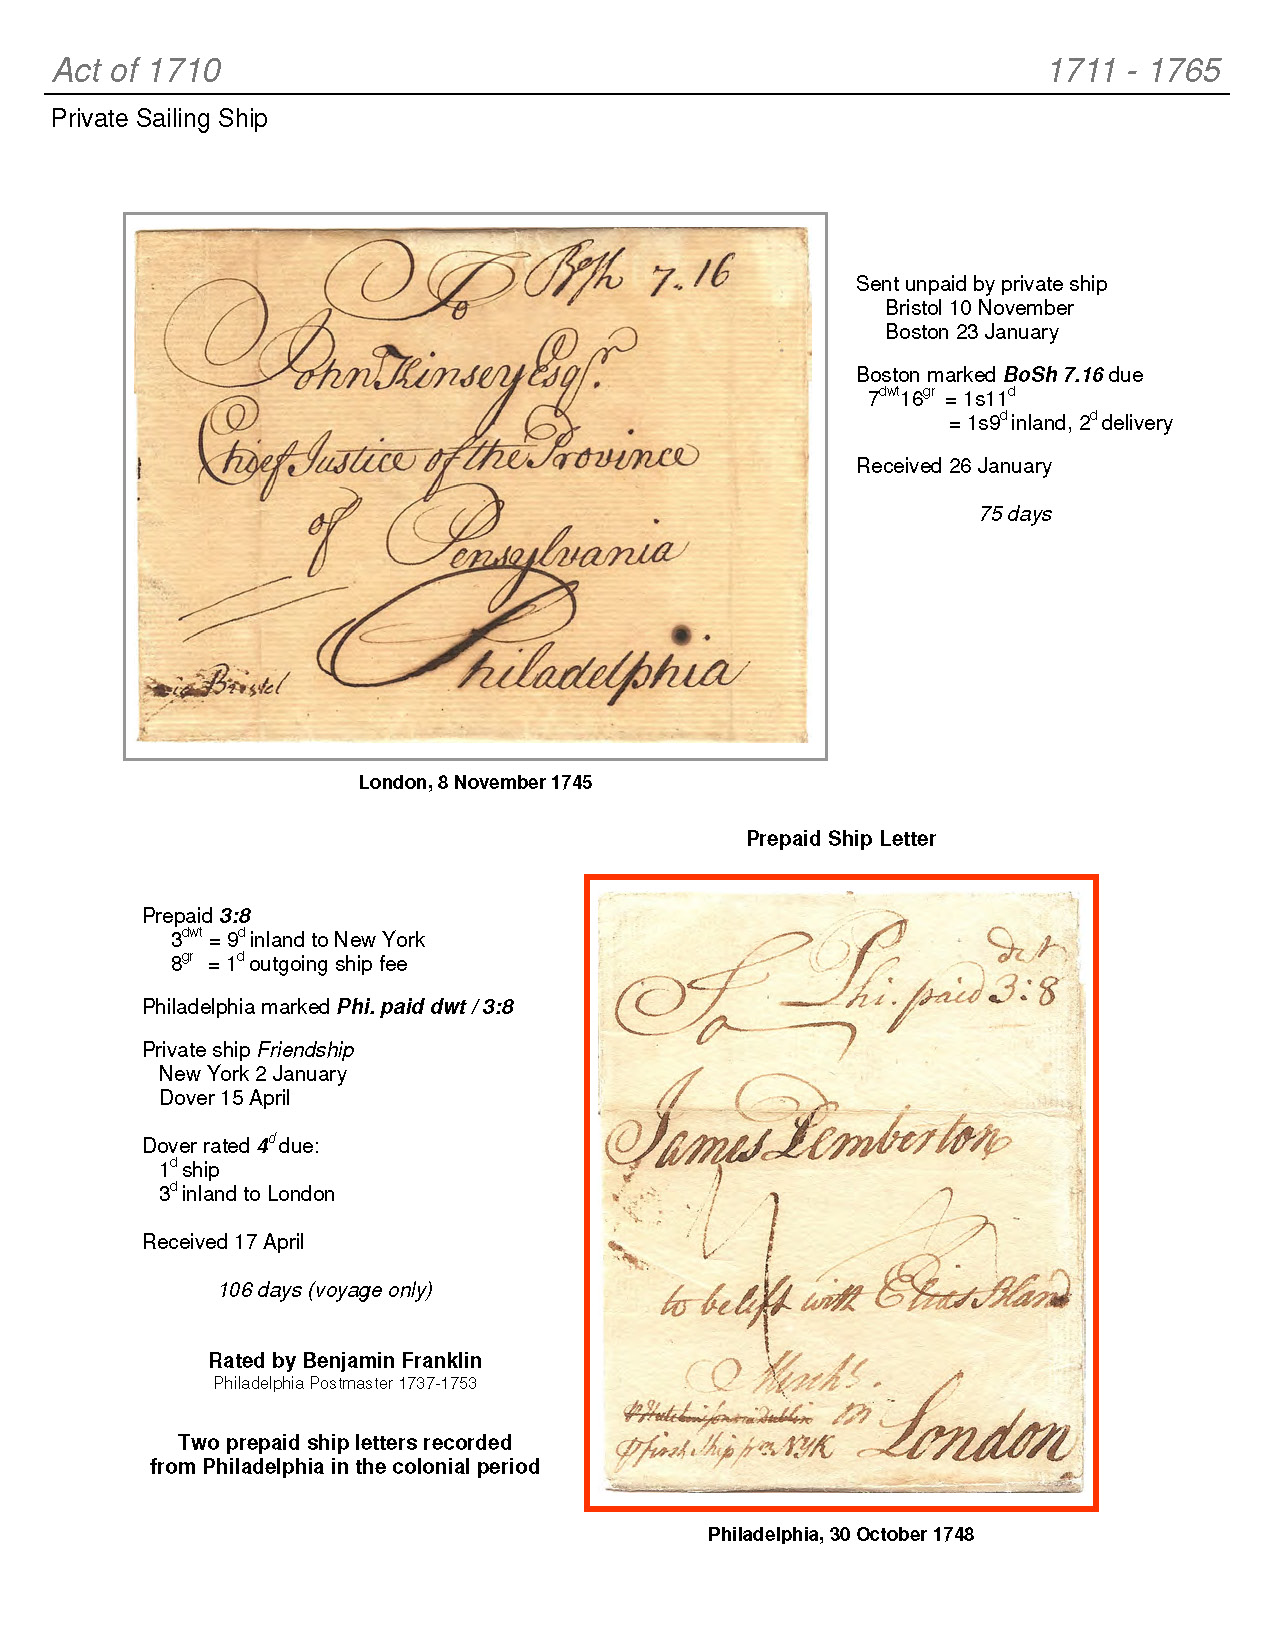 Act of 1710
1711 - 1765
Private Sailing Ship
To BoSh 7..16
John Kinsey Esqr.
Chief Justice of the Province
of Pensylvania
Philadelphia
via Bristol
London, 8 November 1745
Sent unpaid by private ship
Bristol 10 November
Boston 23 January
Boston marked BoSh 7.16 due
7dwt16gr = 1s11d
= 1s9d inland, 2d delivery
Received 26 January
75 days
Prepaid Ship Letter
Prepaid 3:8
3dwt = 9d inland to New York
8gr = 1d outgoing ship fee
Philadelphia marked Phi. paid dwt / 3:8
Private ship Friendship
New York 2 January
Dover 15 April
Dover rated 4d due:
1d ship
3d inland to London
Received 17 April
106 days (voyage only)
Rated by Benjamin Franklin
Philadelphia Postmaster 1737-1753
Two prepaid ship letters recorded
from Philadelphia in the colonial period
dwt
To Phi. paid 3:8
James Pemberton
to be left with Elias Bland
Mercht. in
London
first Ship pm NYK
Philadelphia, 30 October 1748